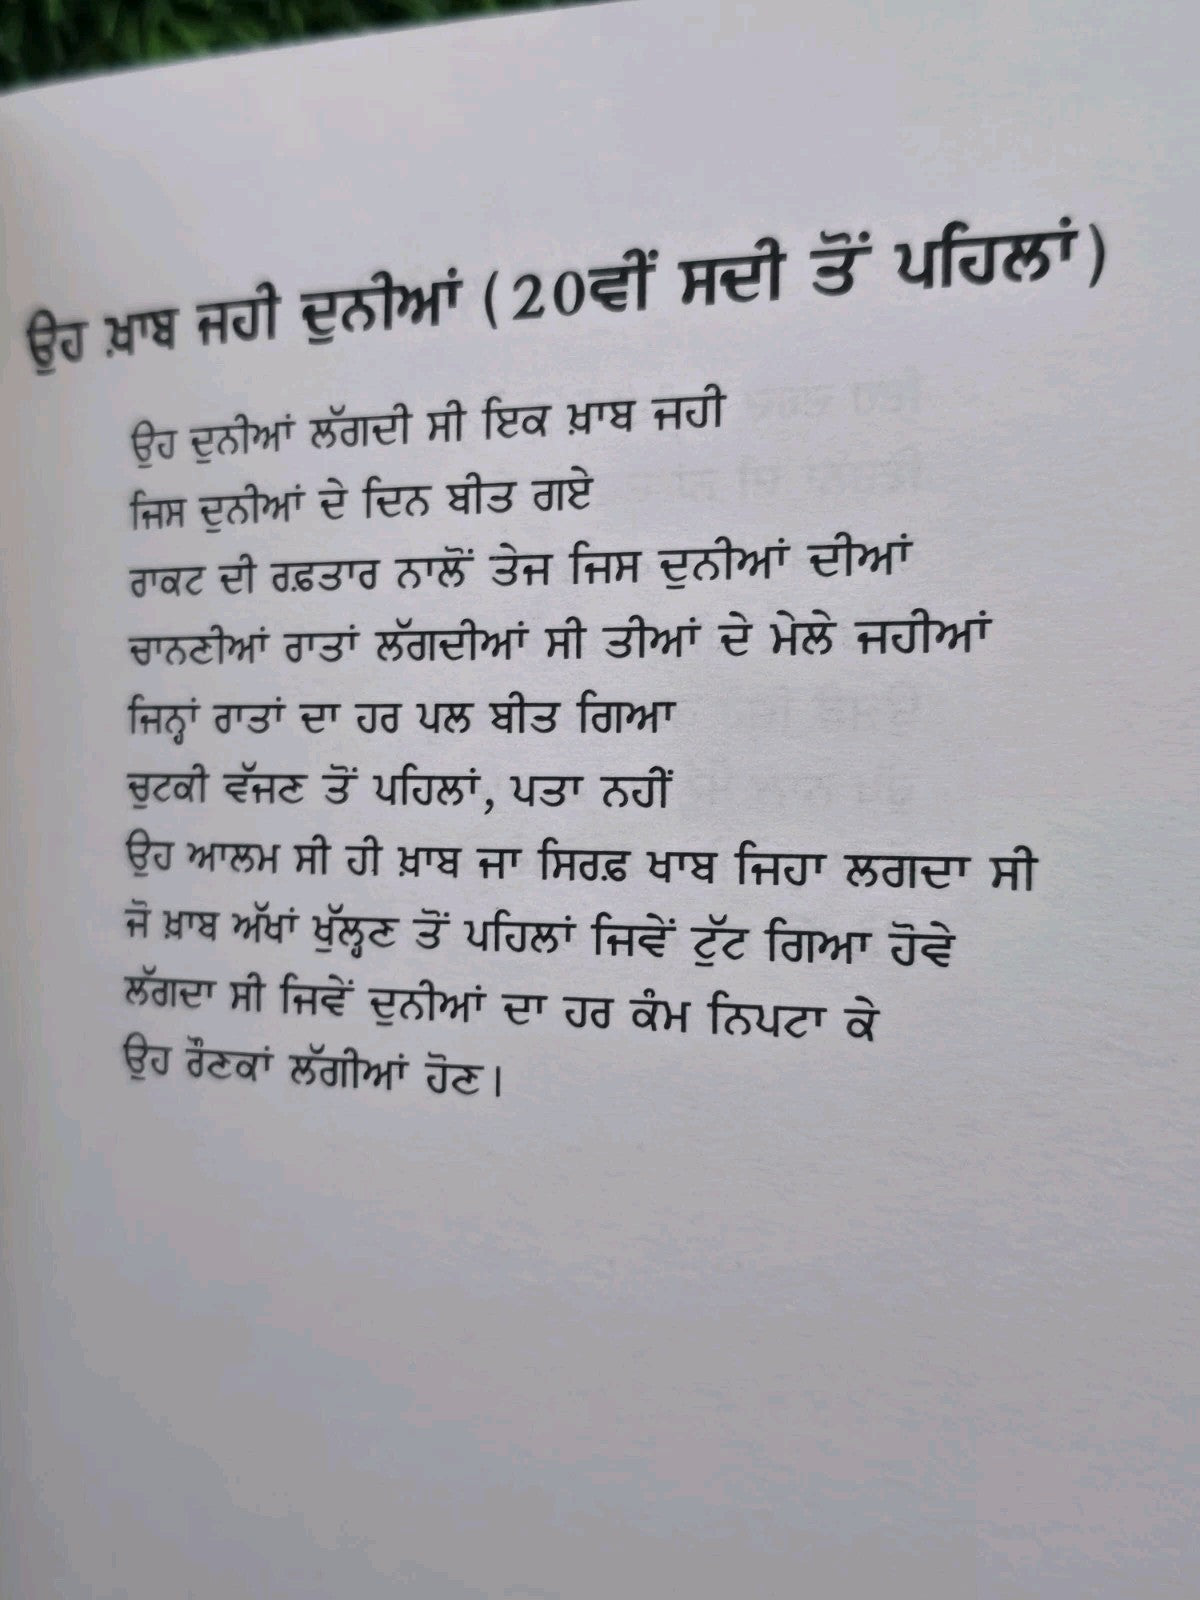 ਉਹ ਖ਼ਾਬ ਜਹੀ ਦੁਨੀਆਂ (20ਵੀਂ ਸਦੀ ਤੋਂ ਪਹਿਲਾਂ)
ਉਹ ਦੁਨੀਆਂ ਲੱਗਦੀ ਸੀ ਇਕ ਖ਼ਾਬ ਜਹੀ
ਜਿਸ ਦੁਨੀਆਂ ਦੇ ਦਿਨ ਬੀਤ ਗਏ
ਰਾਕਟ ਦੀ ਰਫ਼ਤਾਰ ਨਾਲੋਂ ਤੇਜ ਜਿਸ ਦੁਨੀਆਂ ਦੀਆਂ
ਚਾਨਣੀਆਂ ਰਾਤਾਂ ਲੱਗਦੀਆਂ ਸੀ ਤੀਆਂ ਦੇ ਮੇਲੇ ਜਹੀਆਂ
ਜਿਨ੍ਹਾਂ ਰਾਤਾਂ ਦਾ ਹਰ ਪਲ ਬੀਤ ਗਿਆ
ਚੁਟਕੀ ਵੱਜਣ ਤੋਂ ਪਹਿਲਾਂ, ਪਤਾ ਨਹੀਂ
ਉਹ ਆਲਮ ਸੀ ਹੀ ਖ਼ਾਬ ਜਾ ਸਿਰਫ਼ ਖਾਬ ਜਿਹਾ ਲਗਦਾ ਸੀ
ਜੋ ਖ਼ਾਬ ਅੱਖਾਂ ਖੁੱਲ੍ਹਣ ਤੋਂ ਪਹਿਲਾਂ ਜਿਵੇਂ ਟੁੱਟ ਗਿਆ ਹੋਵੇ
ਲੱਗਦਾ ਸੀ ਜਿਵੇਂ ਦੁਨੀਆਂ ਦਾ ਹਰ ਕੰਮ ਨਿਪਟਾ ਕੇ
ਉਹ ਰੌਣਕਾਂ ਲੱਗੀਆਂ ਹੋਣ।